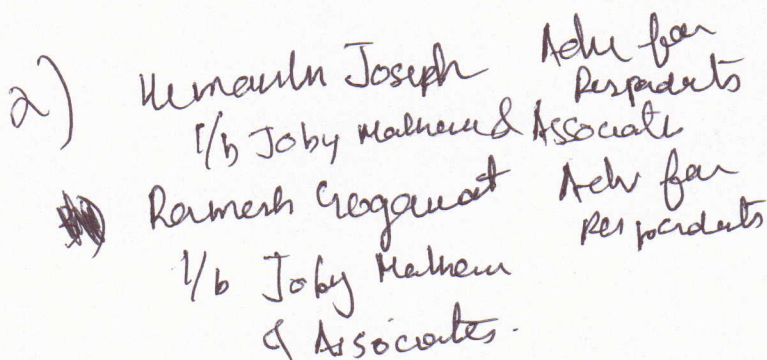 2) Hemanth Joseph Adv for Respondents
i/b Joby Mathew & Associates
Ramesh Gogawat Adv for Respondents
i/b Joby Mathew
& Associates.